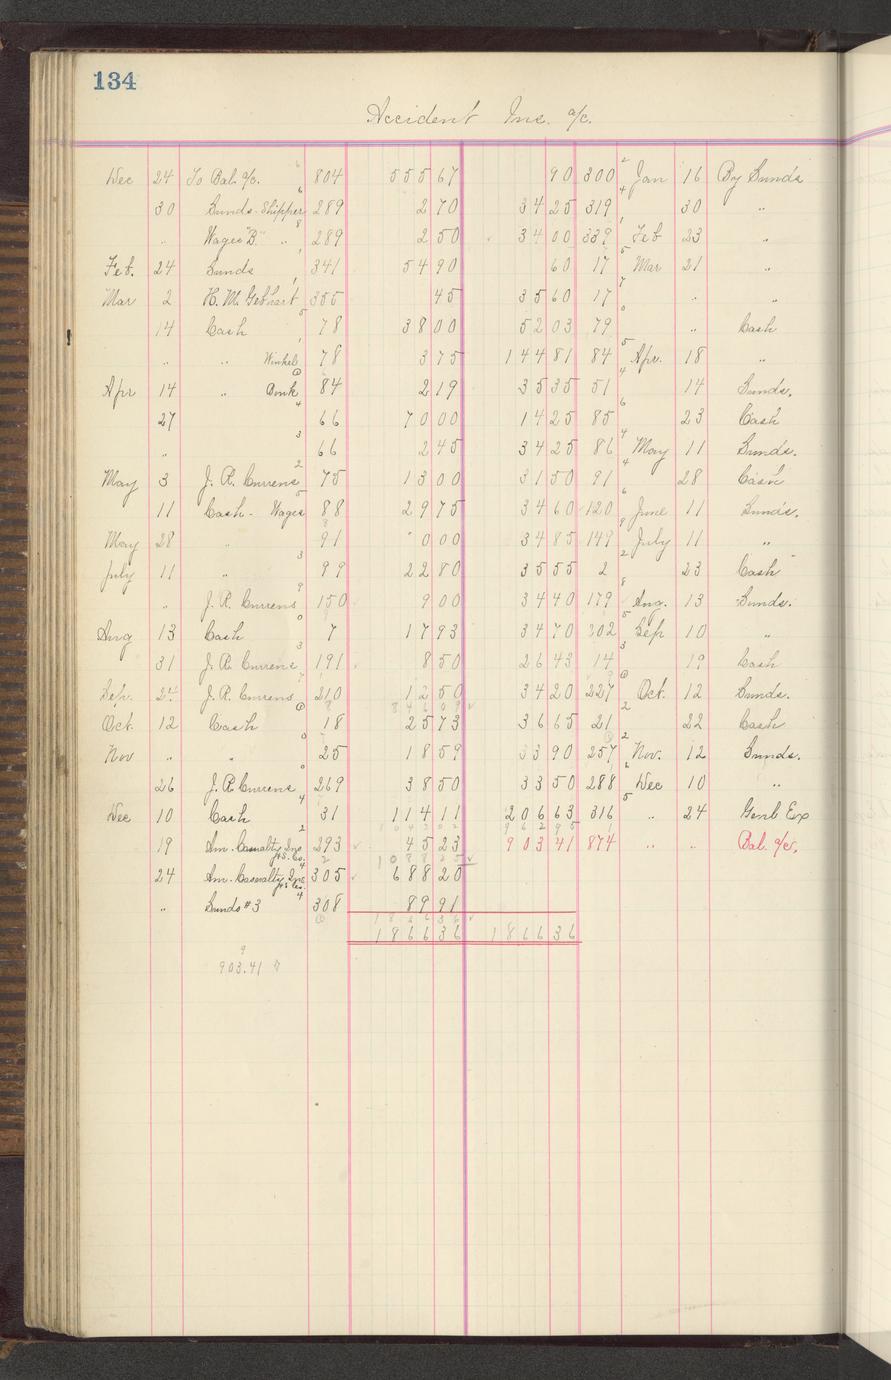 134
Accident Ins. a/c.
Dec 24 To Bal. a/c. 804 555 67 90 300 Jan 16 By Sunds
30 Sunds - Shipper 289 2 70 34 25 319 30 "
" Wages "B." " 289 2 50 34 00 339 Feb 23 "
Feb. 24 Sunds 341 54 90 60 17 Mar 21 "
Mar 2 H. M. Gebhart 355 45 35 60 17 " "
14 Cash 78 38 00 52 03 79 " Cash
" " Winkel 78 3 75 144 81 84 Apr. 18 "
Apr 14 " Bonk 84 2 19 35 35 51 14 Sunds.
27 66 70 00 14 25 85 23 Cash
" 66 2 45 34 25 86 May 11 Sunds.
May 3 J. R. Currens 75 13 00 31 50 91 28 Cash
11 Cash - Wages 88 29 75 34 60 120 June 11 Sunds.
May 28 " 91 0 00 34 85 149 July 11 "
July 11 " 99 22 80 35 55 2 23 Cash
" J. R. Currens 150 9 00 34 40 179 Aug. 13 Sunds.
Aug 13 Cash 7 17 93 34 70 202 Sep 10 "
31 J. R. Currens 191 8 50 26 43 14 19 Cash
Sep. 24 J. R. Currens 210 12 50 34 20 227 Oct. 12 Sunds.
846 09
Oct. 12 Cash 18 25 73 36 65 21 22 Cash
Nov " " 25 18 59 33 90 257 Nov. 12 Sunds.
26 J. R. Currens 269 38 50 33 50 288 Dec 10 "
Dec 10 Cash 31 114 11 206 63 316 " 24 Genl Exp
1043 02 962 95
19 Am. Casualty Ins & S. Co. 293 45 23 903 41 874 " " Bal. a/c.
1088 25
24 Am. Casualty Ins & S. Co. 305 688 20
" Sunds #3 308 89 91
1866 36
1866 36 1866 36
903.41